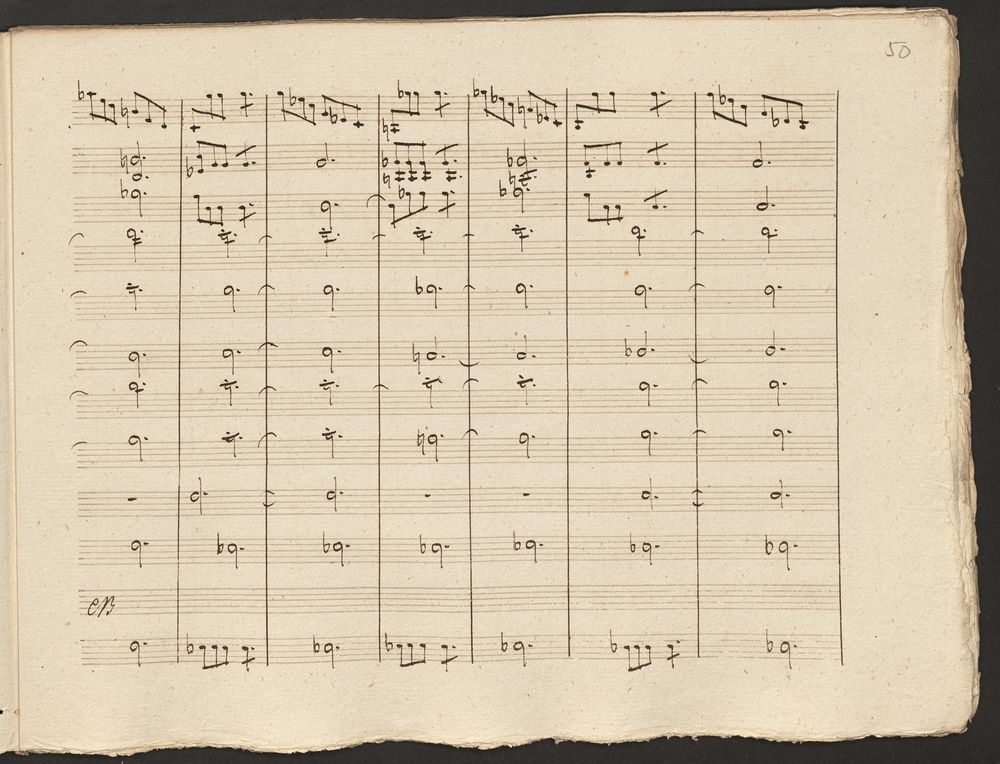 50
CB